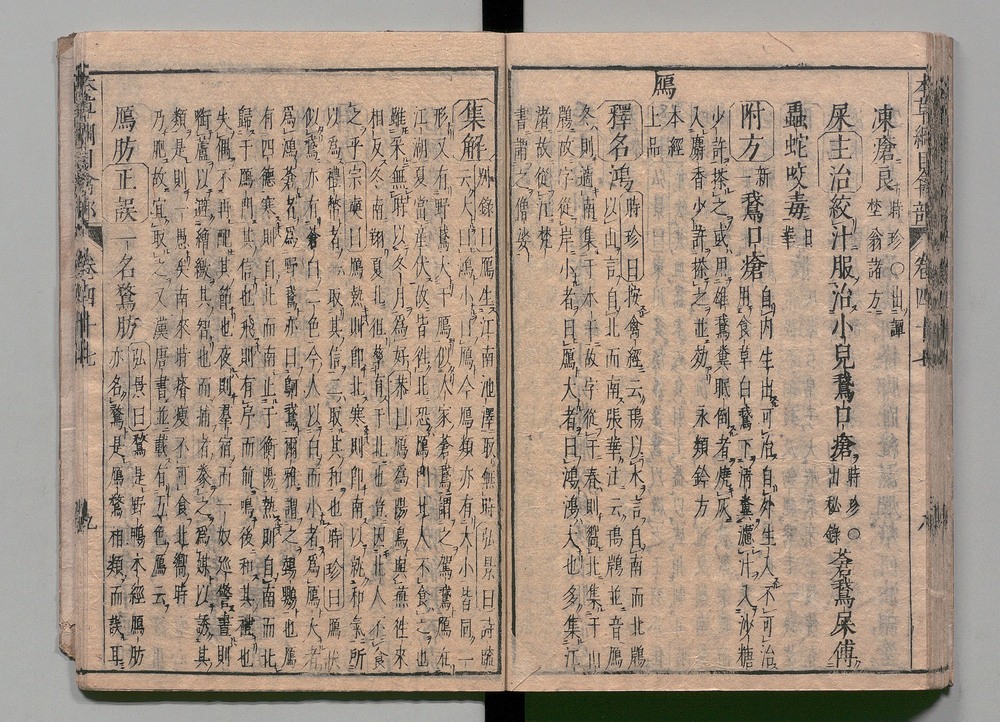 本草綱目禽部 卷四十七
凍瘡良 時珍○出譚
埜翁諸方
屎主治絞汁服治小兒鵞口瘡 時珍○
出秘錄 蒼鵞屎傅
蟲蛇咬毒 日華
附方 新一 鵞口瘡 自內生出可治自外生入不可治
用食草白鵞下清糞濾汁入沙糖
少許搽之或用雄鵞糞眠倒者燒灰
入麝香少許搽之並効 永類鈐方
鴈 本經
上品
釋名 鴻 時珍曰按禽經云鳱以水言自南而北鳱
以山言自北而南張華注云鳱鳱並音鴈
冬則適南集于水干故字從干春則嚮北集于山
鳱故字從岸小者曰鴈大者曰鴻鴻大也多集江
渚故從江梵
書謂之僧娑
集解 別錄曰鴈生江南池澤取無時 弘景曰詩疏
云大曰鴻小曰鴈今鴈類亦有大小皆同一
形又有野鵞大于鴈似人家蒼鵞謂之駕鵞鴈在
江湖夏當產伏故皆徃北恐鴈門北人不食之也
雖采無時以冬月爲好 恭曰鴈爲陽鳥與燕徃來
相反冬南翔夏北徂孳育于北也豈因北人不食
之乎 宗奭曰鴈熱則即北寒則即南以就和氣所
以爲禮幣者一取其信二取其和也 時珍曰鴈狀
似鵞亦有蒼白二色今人以白而小者爲鴈大者
爲鴻蒼者爲野鵞亦曰鴚鵞爾雅謂之鶩鷜也鴈
有四德寒則自北而南止于衡陽熱則自南而北
歸于鴈門其信也飛則有序而前鳴後和其禮也
失偶不再配其節也夜則羣宿而一奴巡警晝則
銜蘆以避繒繳其智也而捕者豢之爲媒以誘其
類是則一愚矣南來時瘠瘦不可食北嚮時
乃肥故宜取之又漢唐書並載有五色鴈云
鴈肪 正誤 一名鶩肪 弘景曰鶩是野鴨本經鴈肪
亦名鶩是鴈鶩相類而誤耳
本草綱目禽部 卷四十七 九